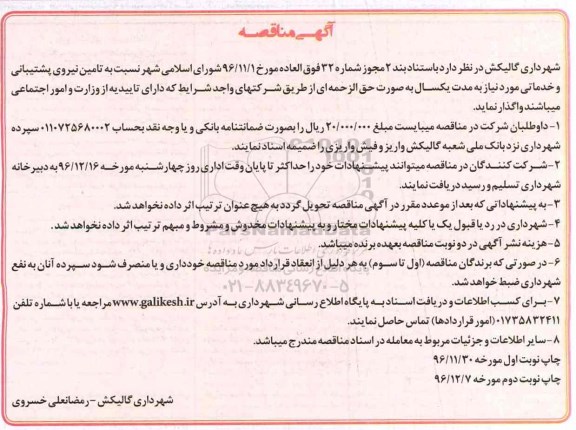 آگهی مناقصه
شهرداری گالیکش در نظر دارد باستناد بند ۲ مجوز شماره ۳۲ فوق العاده مورخ ۹۶/۱۱/۱ شورای اسلامی شهر نسبت به تامین نیروی پشتیبانی
و خدماتی مورد نیاز به مدت یکسال به صورت حق الزحمه ای از طریق شرکتهای واجد شرایط که دارای تاییدیه از وزارت و امور اجتماعی
میباشند واگذار نماید.
۱- داوطلبان شرکت در مناقصه میبایست مبلغ ۲۰/۰۰۰/۰۰۰ ریال را بصورت ضمانتنامه بانکی و یا وجه نقد بحساب ۰۱۱۰۷۲۵۶۸۰۰۰۲ سپرده
شهرداری نزد بانک ملی شعبه گالیکش واریز و فیش واریزی را ضمیمه اسناد نمایند.
۲- شرکت کنندگان در مناقصه میتوانند پیشنهادات خود را حداکثر تا پایان وقت اداری روز چهارشنبه مورخه ۹۶/۱۲/۱۶ به دبیرخانه
شهرداری تسلیم و رسید دریافت نمایند.
۳- به پیشنهاداتی که بعد از موعد مقرر در آگهی مناقصه تحویل گردد به هیچ عنوان ترتیب اثر داده نخواهد شد.
۴- شهرداری در رد یا قبول یک یا کلیه پیشنهادات مختار و به پیشنهادات مخدوش و مشروط و مبهم ترتیب اثر داده نخواهد شد.
۵- هزینه نشر آگهی در دو نوبت مناقصه بعهده برنده میباشد.
۶- در صورتی که برندگان مناقصه (اول تا سوم) به هر دلیل از انعقاد قرارداد مورد مناقصه خودداری و یا منصرف شود سپرده آنان به نفع
شهرداری ضبط خواهد شد.
۰۲۱-۸۸۳۴۹۶۷۰-۵
۷- برای کسب اطلاعات و دریافت اسناد به پایگاه اطلاع رسانی شهرداری به آدرس www.galikesh.ir مراجعه یا با شماره تلفن
۰۱۷۳۵۸۳۲۴۱۱ (امور قراردادها) تماس حاصل نمایند.
۸- سایر اطلاعات و جزئیات مربوط به معامله در اسناد مناقصه مندرج میباشد.
چاپ نوبت اول مورخه ۹۶/۱۱/۳۰
چاپ نوبت دوم مورخه ۹۶/۱۲/۷
شهرداری گالیکش - رمضانعلی خسروی